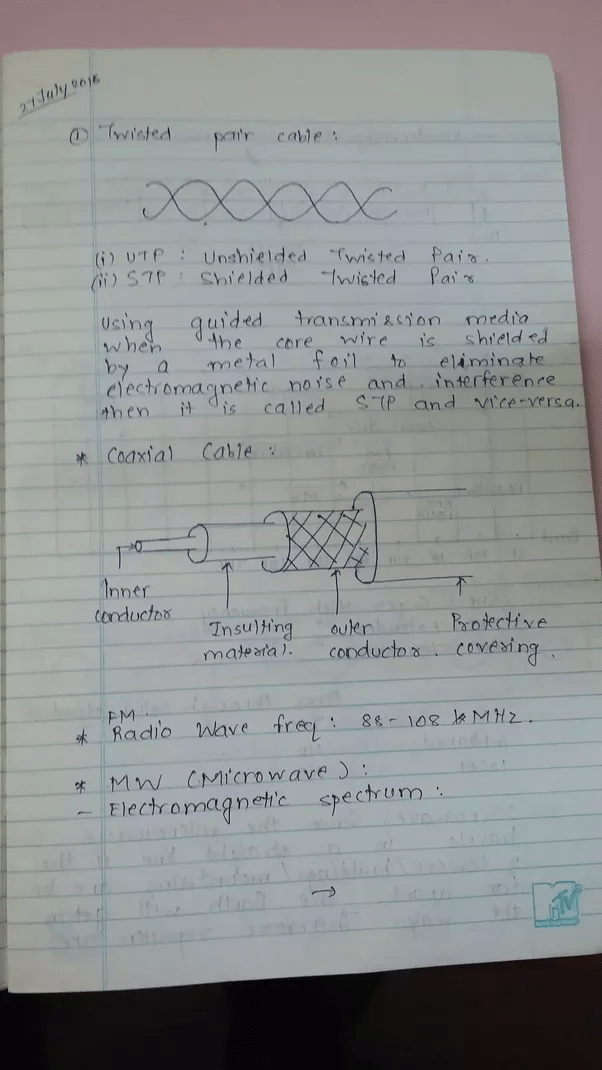 27 July 2016
① Twisted pair cable :
(i) UTP : Unshielded Twisted Pair.
(ii) STP : Shielded Twisted Pair
Using guided transmission media
when the core wire is shielded
by a metal foil to eliminate
electromagnetic noise and interference
then it is called STP and vice-versa.
* Coaxial Cable :
Inner conductor
Insulting material.
outer conductor.
Protective covering.
FM
* Radio Wave freq : 88 - 108 MHz.
* MW (Microwave) :
- Electromagnetic spectrum :
→
MTV